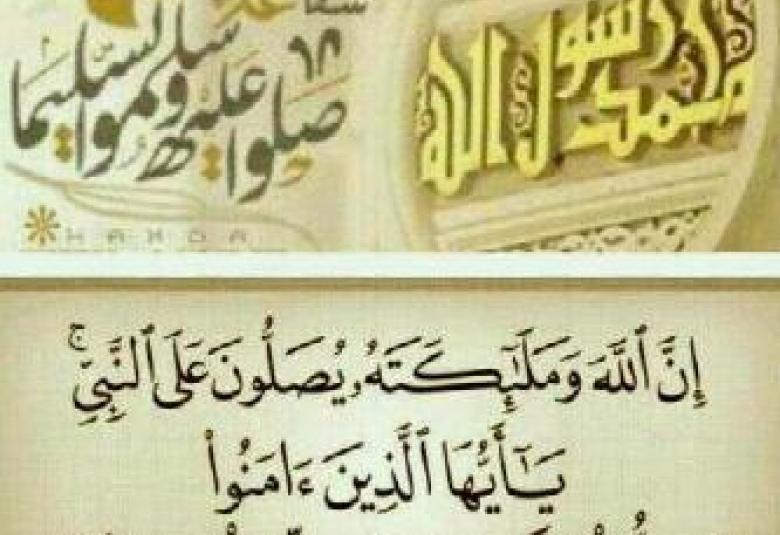 صلوا عليه وسلموا تسليما
محمد رسول الله
HAMDA
إِنَّ ٱللَّهَ وَمَلَـٰٓئِكَتَهُۥ يُصَلُّونَ عَلَى ٱلنَّبِىِّ ۚ
يَـٰٓأَيُّهَا ٱلَّذِينَ ءَامَنُوا۟